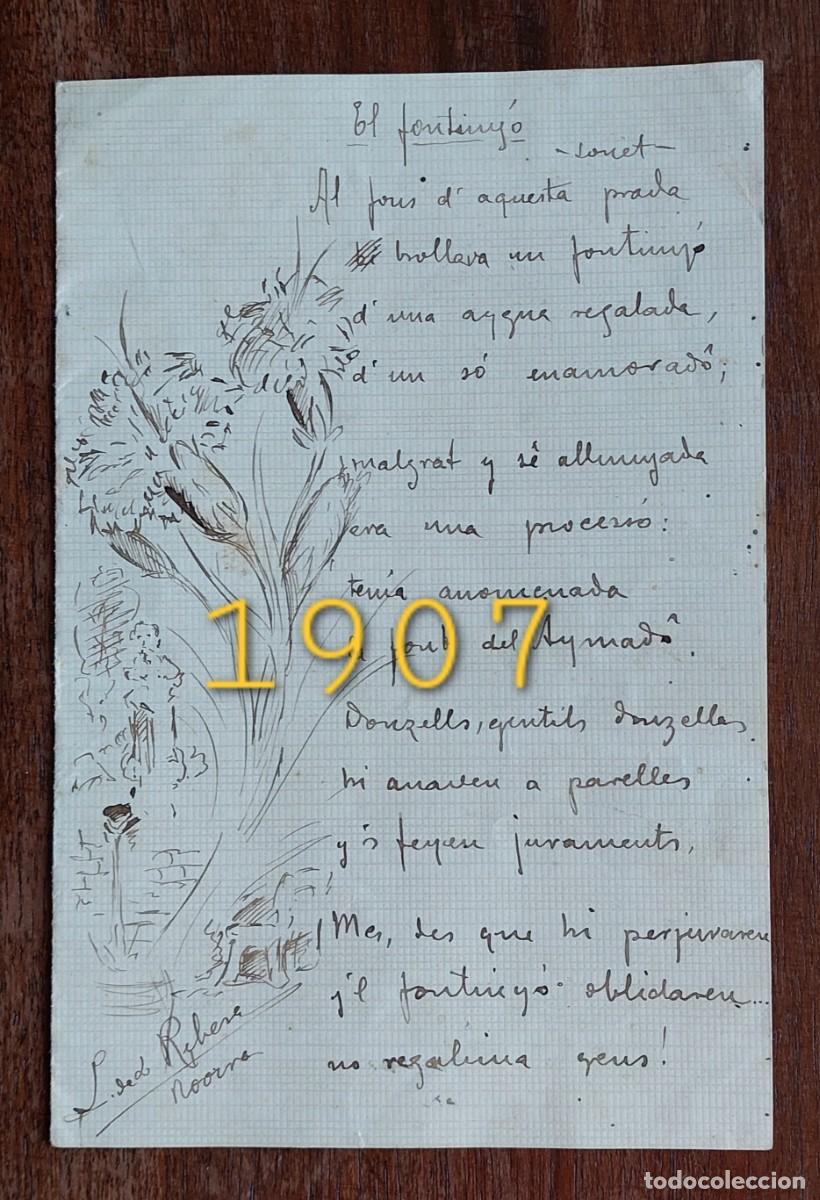 El fontinyó
-sonet-
Al fons d'aquesta prada
brollava un fontinyó
d'una aygua regalada,
d'un só enamoradô;
malgrat y sê allunyada
era una processó:
tenia anomenada
font del Aymadô.
Donzells, gentils donzelles
hi anaven a parelles
y's feyen juraments,
Mes, des que hi perjuraren
y'l fontinyó oblidaren...
no regalima gens!
Rybera
1907
todocoleccion